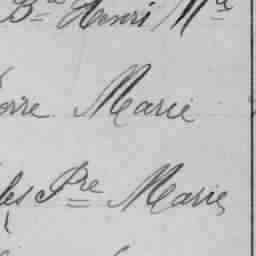 Bte Henri Mie
erre Marie
les Pre Marie